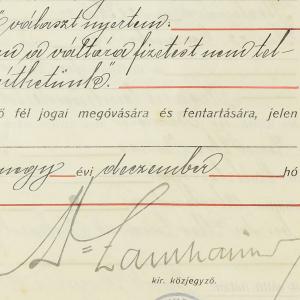 választ nyertem:
a váltóra fizetést nem tel-
jesíthetünk".
ő fél jogai megóvására és fentartására, jelen
négy évi deczember hó
kir. közjegyző.